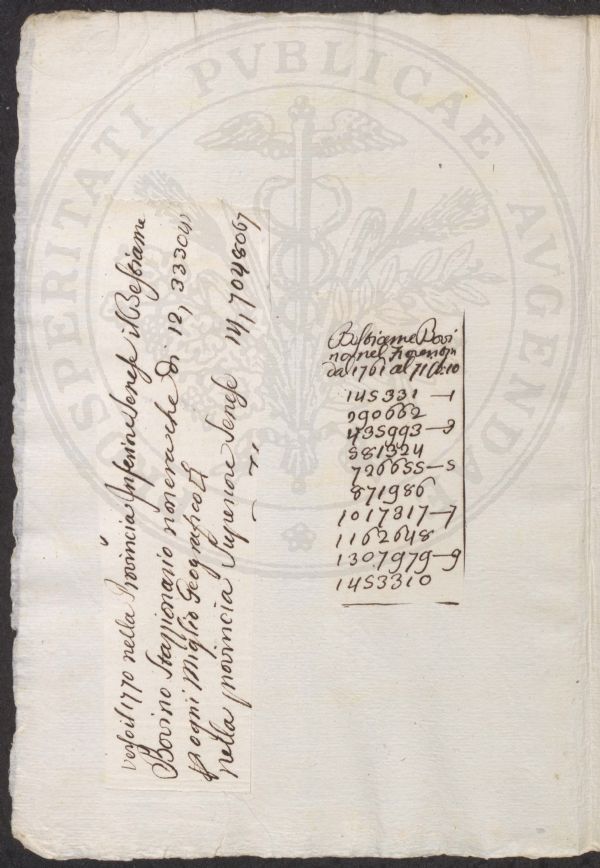 PROSPERITATI PVBLICAE AVGENDAE
Verso il 1770 nella Provincia Inferiore Senese il Bestiame
Bovino Stazionario non era che di 12, 33304
ogni Miglio Geografico
nella provincia Superiore Senese 7048067
Bestiame Bovi
no nel
da 1761 al 71
145331 — 1
290662
435993 — 3
581324
726655 — 5
871986
1017317 — 7
1162648
1307979 — 9
1453310